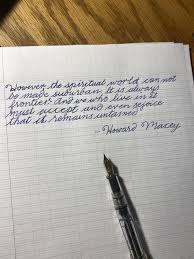 However, the spiritual world can not
be made suburban. It is always
frontier. And we who live in it
must accept and even rejoice
that it remains untamed
-- Howard Macey